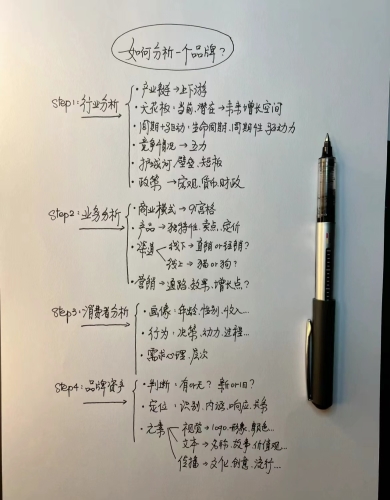 如何分析一个品牌？
Step1：行业分析
· 产业链 → 上下游
· 天花板：当前.潜在 → 未来增长空间
· 周期+驱动：生命周期.周期性.驱动力
· 竞争情况 → 五力
· 护城河.壁垒.短板
· 政策 → 宏观.货币.财政
Step2：业务分析
· 商业模式 → 9宫格
· 产品 → 独特性.卖点.定价
· 渠道
线下 → 直销or经销？
线上 → 猫or狗？
· 营销 → 通路.效果.增长点？
Step3：消费者分析
· 画像：年龄.性别.收入...
· 行为：决策.动力.过程...
· 需求心理.层次
Step4：品牌资产
· 判断：有or无？新or旧？
· 定位：识别.内涵.响应.关系
· 元素
视觉 → logo.形象.颜色...
文本 → 名称.故事.价值观...
传播 → 文化.创意.流行...